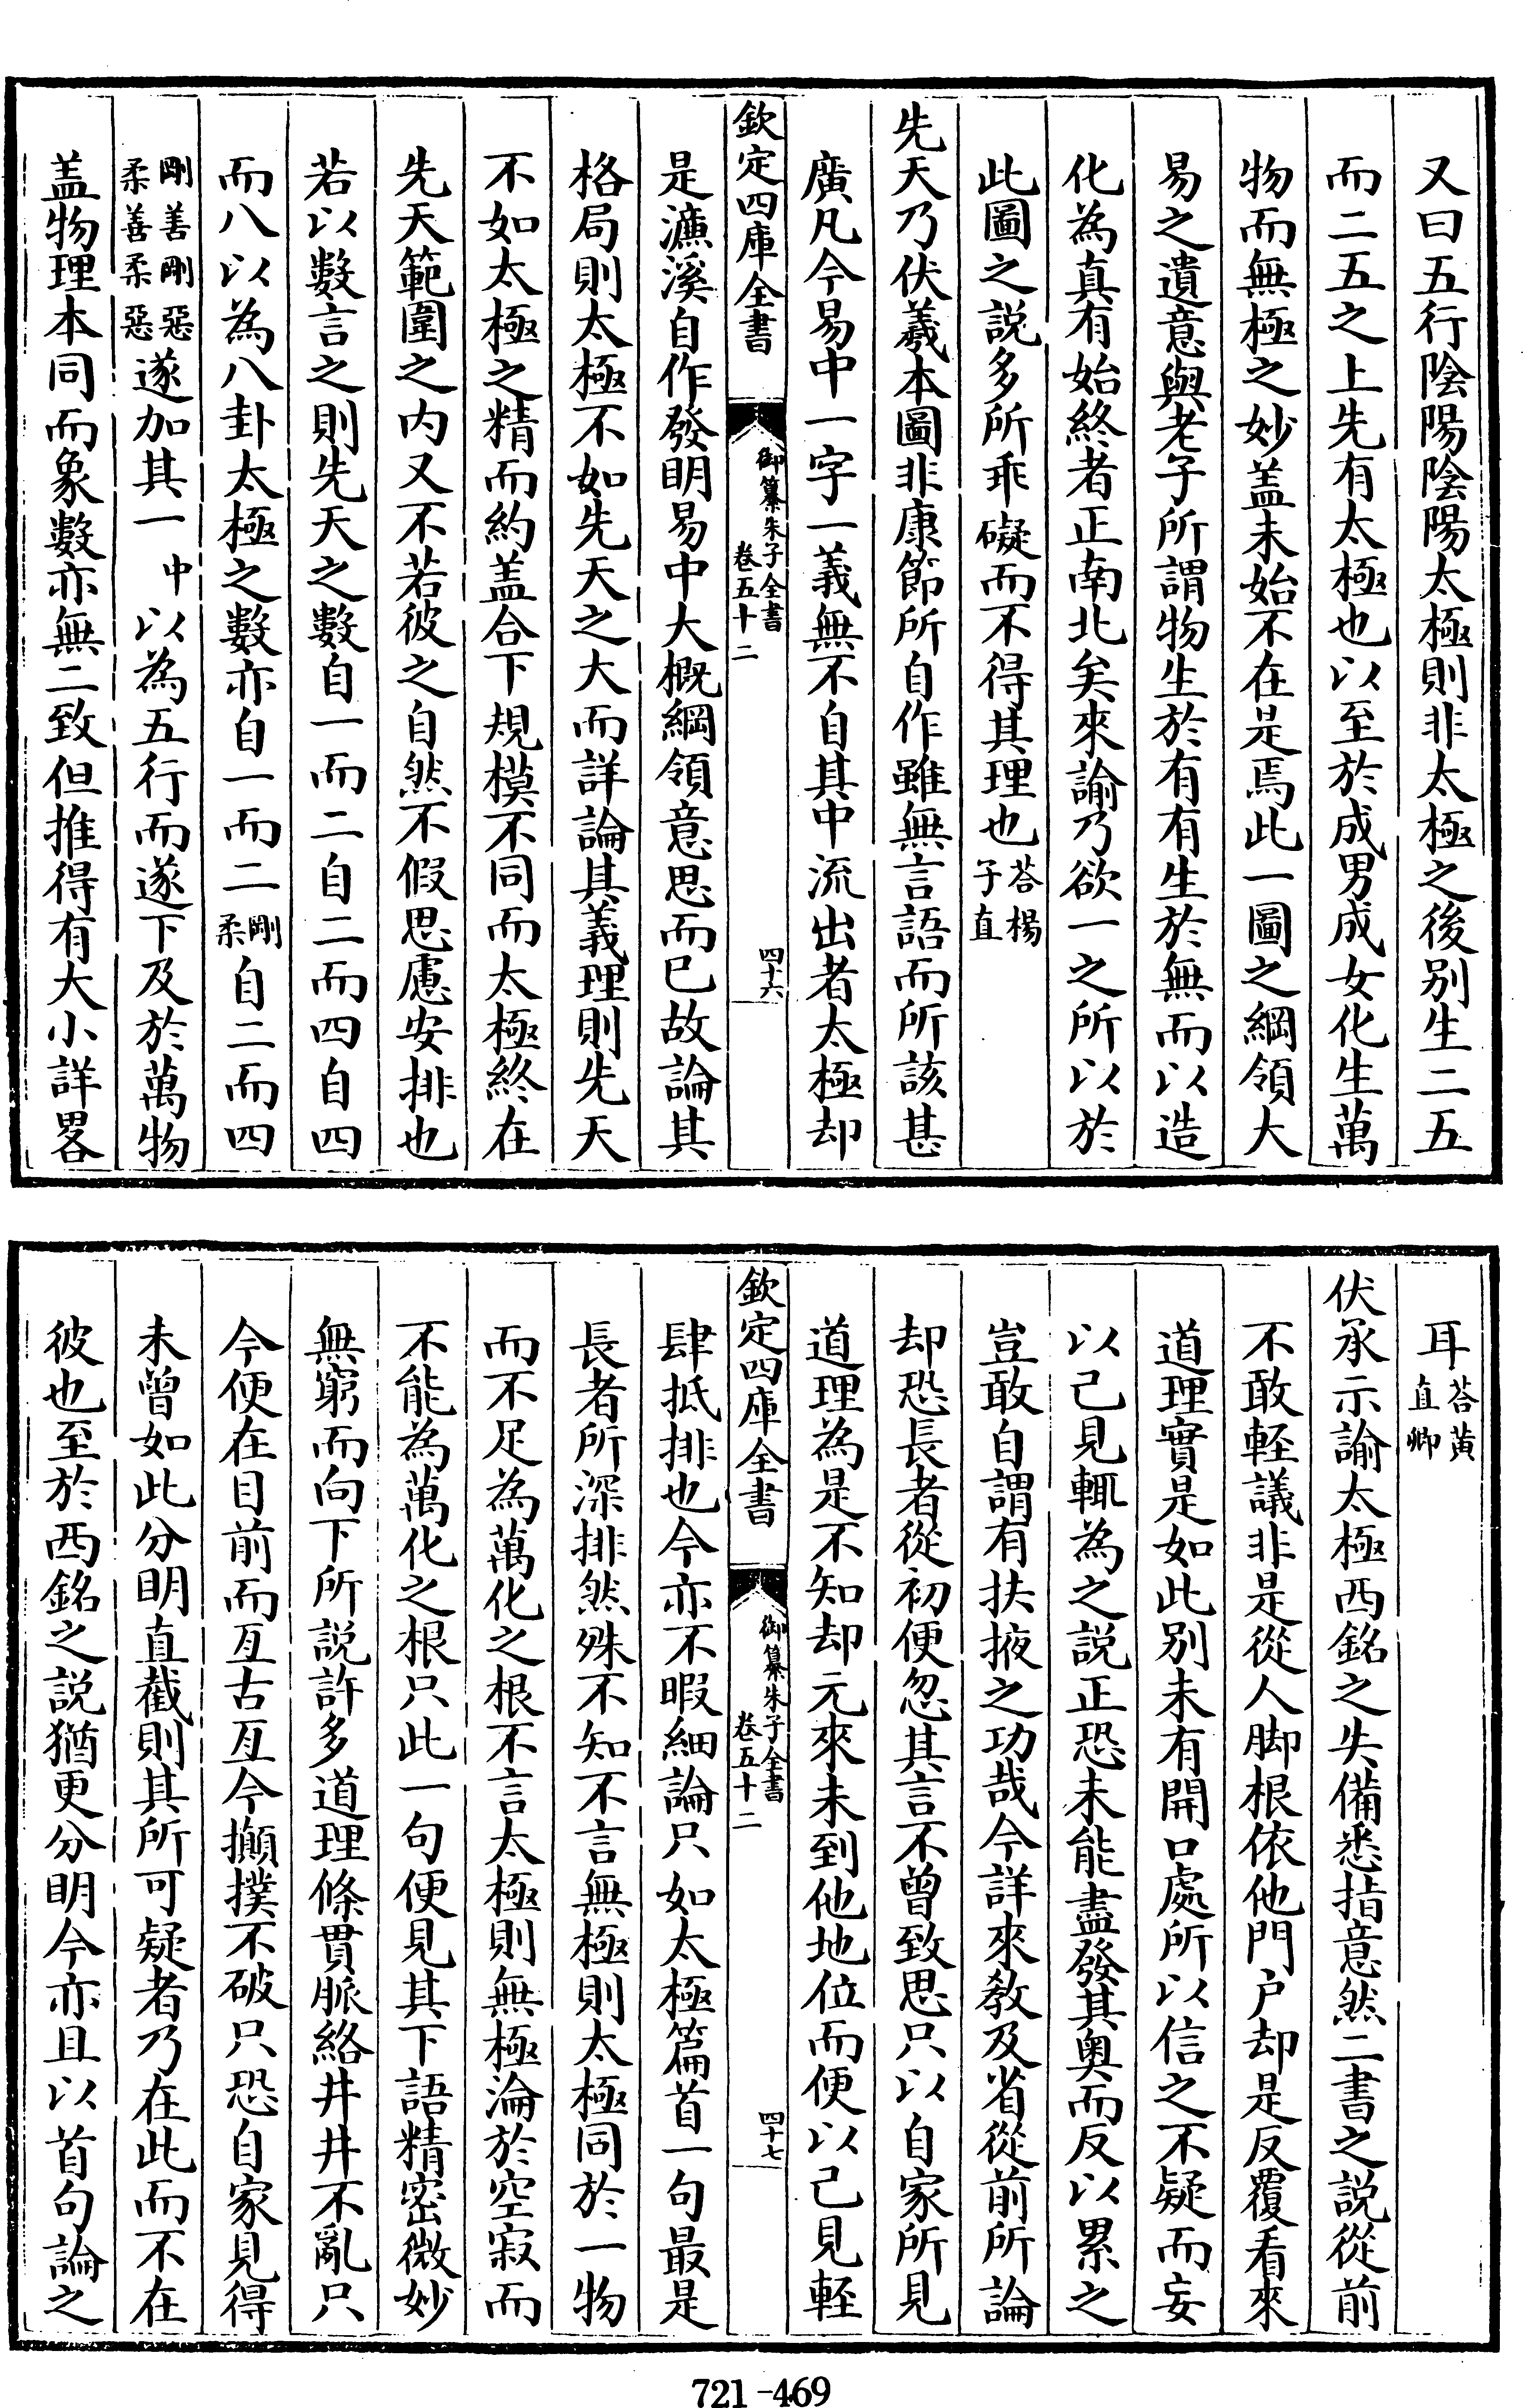 又曰五行陰陽陰陽太極則非太極之後别生二五
而二五之上先有太極也以至於成男成女化生萬
物而無極之妙盖未始不在是焉此一圖之綱領大
易之遺意與老子所謂物生於有有生於無而以造
化為真有始終者正南北矣來諭乃欲一之所以於
此圖之説多所乖礙而不得其理也荅楊子直
先天乃伏羲本圖非康節所自作雖無言語而所該甚
廣凡今易中一字一義無不自其中流出者太極却
欽定四庫全書
御纂朱子全書
卷五十二
四十六
是濂溪自作發明易中大概綱領意思而已故論其
格局則太極不如先天之大而詳論其義理則先天
不如太極之精而約盖合下規模不同而太極終在
先天範圍之内又不若彼之自然不假思慮安排也
若以數言之則先天之數自一而二自二而四自四
而八以為八卦太極之數亦自一而二剛柔自二而四
剛善剛惡柔善柔惡遂加其一中以為五行而遂下及於萬物
盖物理本同而象數亦無二致但推得有大小詳畧
耳荅黄直卿
伏承示諭太極西銘之失備悉指意然二書之説從前
不敢輕議非是從人脚根依他門户却是反覆看來
道理實是如此别未有開口處所以信之不疑而妄
以己見輒為之説正恐未能盡發其奥而反以累之
豈敢自謂有扶掖之功哉今詳來教及省從前所論
却恐長者從初便忽其言不曾致思只以自家所見
道理為是不知却元來未到他地位而便以己見輕
欽定四庫全書
御纂朱子全書
卷五十二
四十七
肆抵排也今亦不暇細論只如太極篇首一句最是
長者所深排然殊不知不言無極則太極同於一物
而不足為萬化之根不言太極則無極淪於空寂而
不能為萬化之根只此一句便見其下語精密微妙
無窮而向下所説許多道理條貫脈絡井井不亂只
今便在目前而亙古亙今攧撲不破只恐自家見得
未曾如此分明直截則其所可疑者乃在此而不在
彼也至於西銘之説猶更分明今亦且以首句論之
721-469